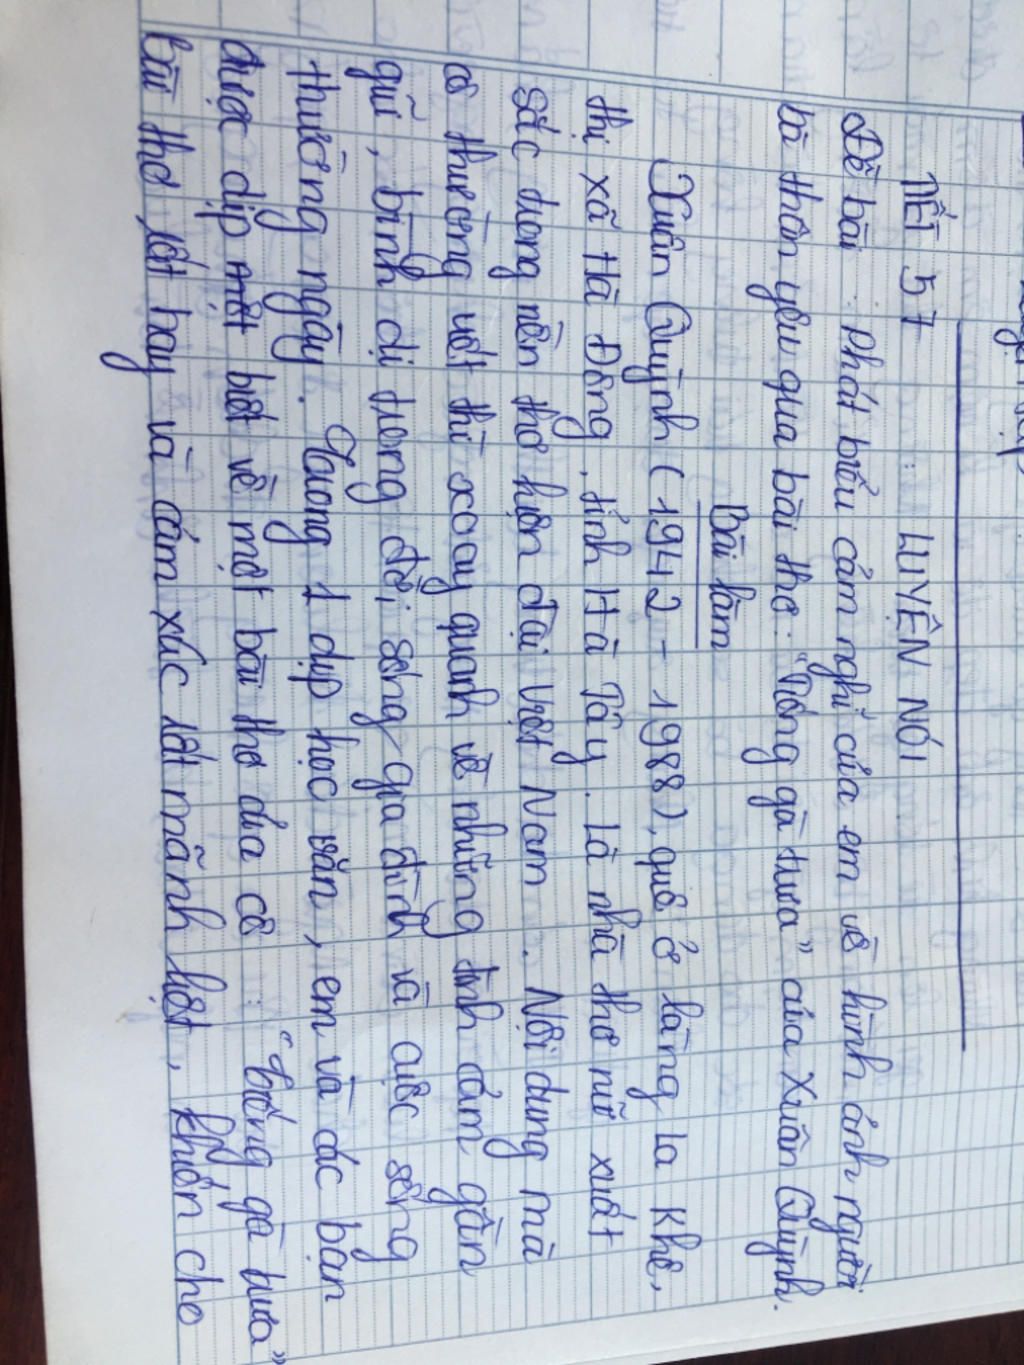 TIẾT 57 : LUYỆN NÓI
Đề bài : Phát biểu cảm nghĩ của em về hình ảnh người
bà thân yêu qua bài thơ : "Tiếng gà trưa" của Xuân Quỳnh.
Bài làm
Xuân Quỳnh ( 1942 - 1988), quê ở làng La Khê,
thị xã Hà Đông, tỉnh Hà Tây. Là nhà thơ nữ xuất
sắc trong nền thơ hiện đại Việt Nam . Nội dung mà
cô thường viết thì xoay quanh về những tình cảm gần
gũi, bình dị trong đời sống gia đình và cuộc sống
thường ngày. Trong 1 dịp học văn, em và các bạn
được dịp một biết về một bài thơ của cô : "tiếng gà trưa"
bài thơ rất hay và cảm xúc rất mãnh liệt, khiến cho